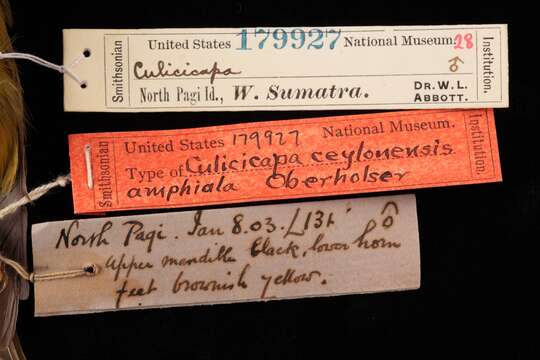 Smithsonian
United States 179927 National Museum. 28
Culicicapa ♂
North Pagi Id., W. Sumatra.
DR. W. L.
ABBOTT.
Institution.
Smithsonian
United States 179927 National Museum.
Type of Culicicapa ceylonensis
amphiala Oberholser
Institution.
North Pagi. Jan 8.03. ♂
Upper mandible black, lower horn
feet brownish yellow.